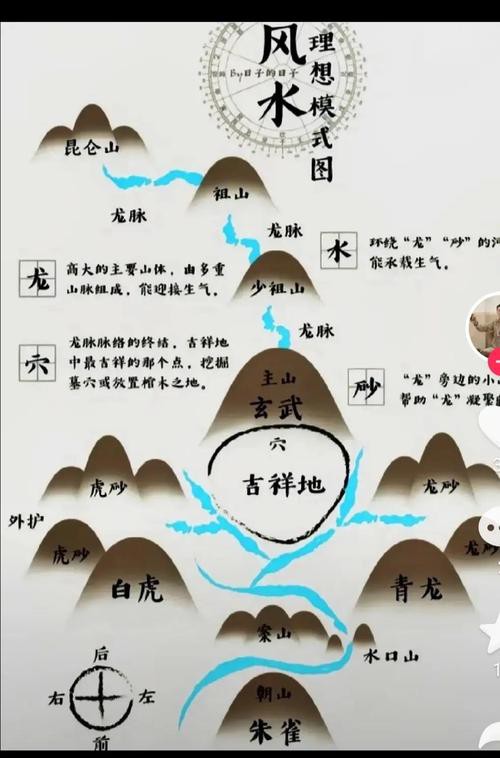 风水
理想模式图
By日子的日子
昆仑山
祖山
龙脉
龙脉
水
环绕“龙”“砂”的河
能承载生气。
龙
高大的主要山体，由多重
山脉组成，能迎接生气。
少祖山
龙脉
穴
龙脉脉络的终结，吉祥地
中最吉祥的那个点，挖掘
墓穴或放置棺木之地。
主山
玄武
砂
“龙”旁边的小山
帮助“龙”凝聚
穴
吉祥地
虎砂
龙砂
外护
虎砂
龙砂
白虎
青龙
案山
水口山
朝山
朱雀
后
右
左
前